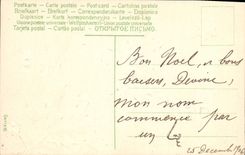 Postkarte — Carte postale — Postcard — Cartolina postale
Briefkaart — Brefkort — Correspondenzkarte — Dopisnice
Brevkort — Karta korespondencyjna — Levelező-Lap
Weltpostverein — Union postale universelle
Tarjeta postal — ОТКРЫТОЕ ПИСЬМО
Bon Noel, et bons
baisers, Devine,
mon nom
commence par
un
25 Decembre